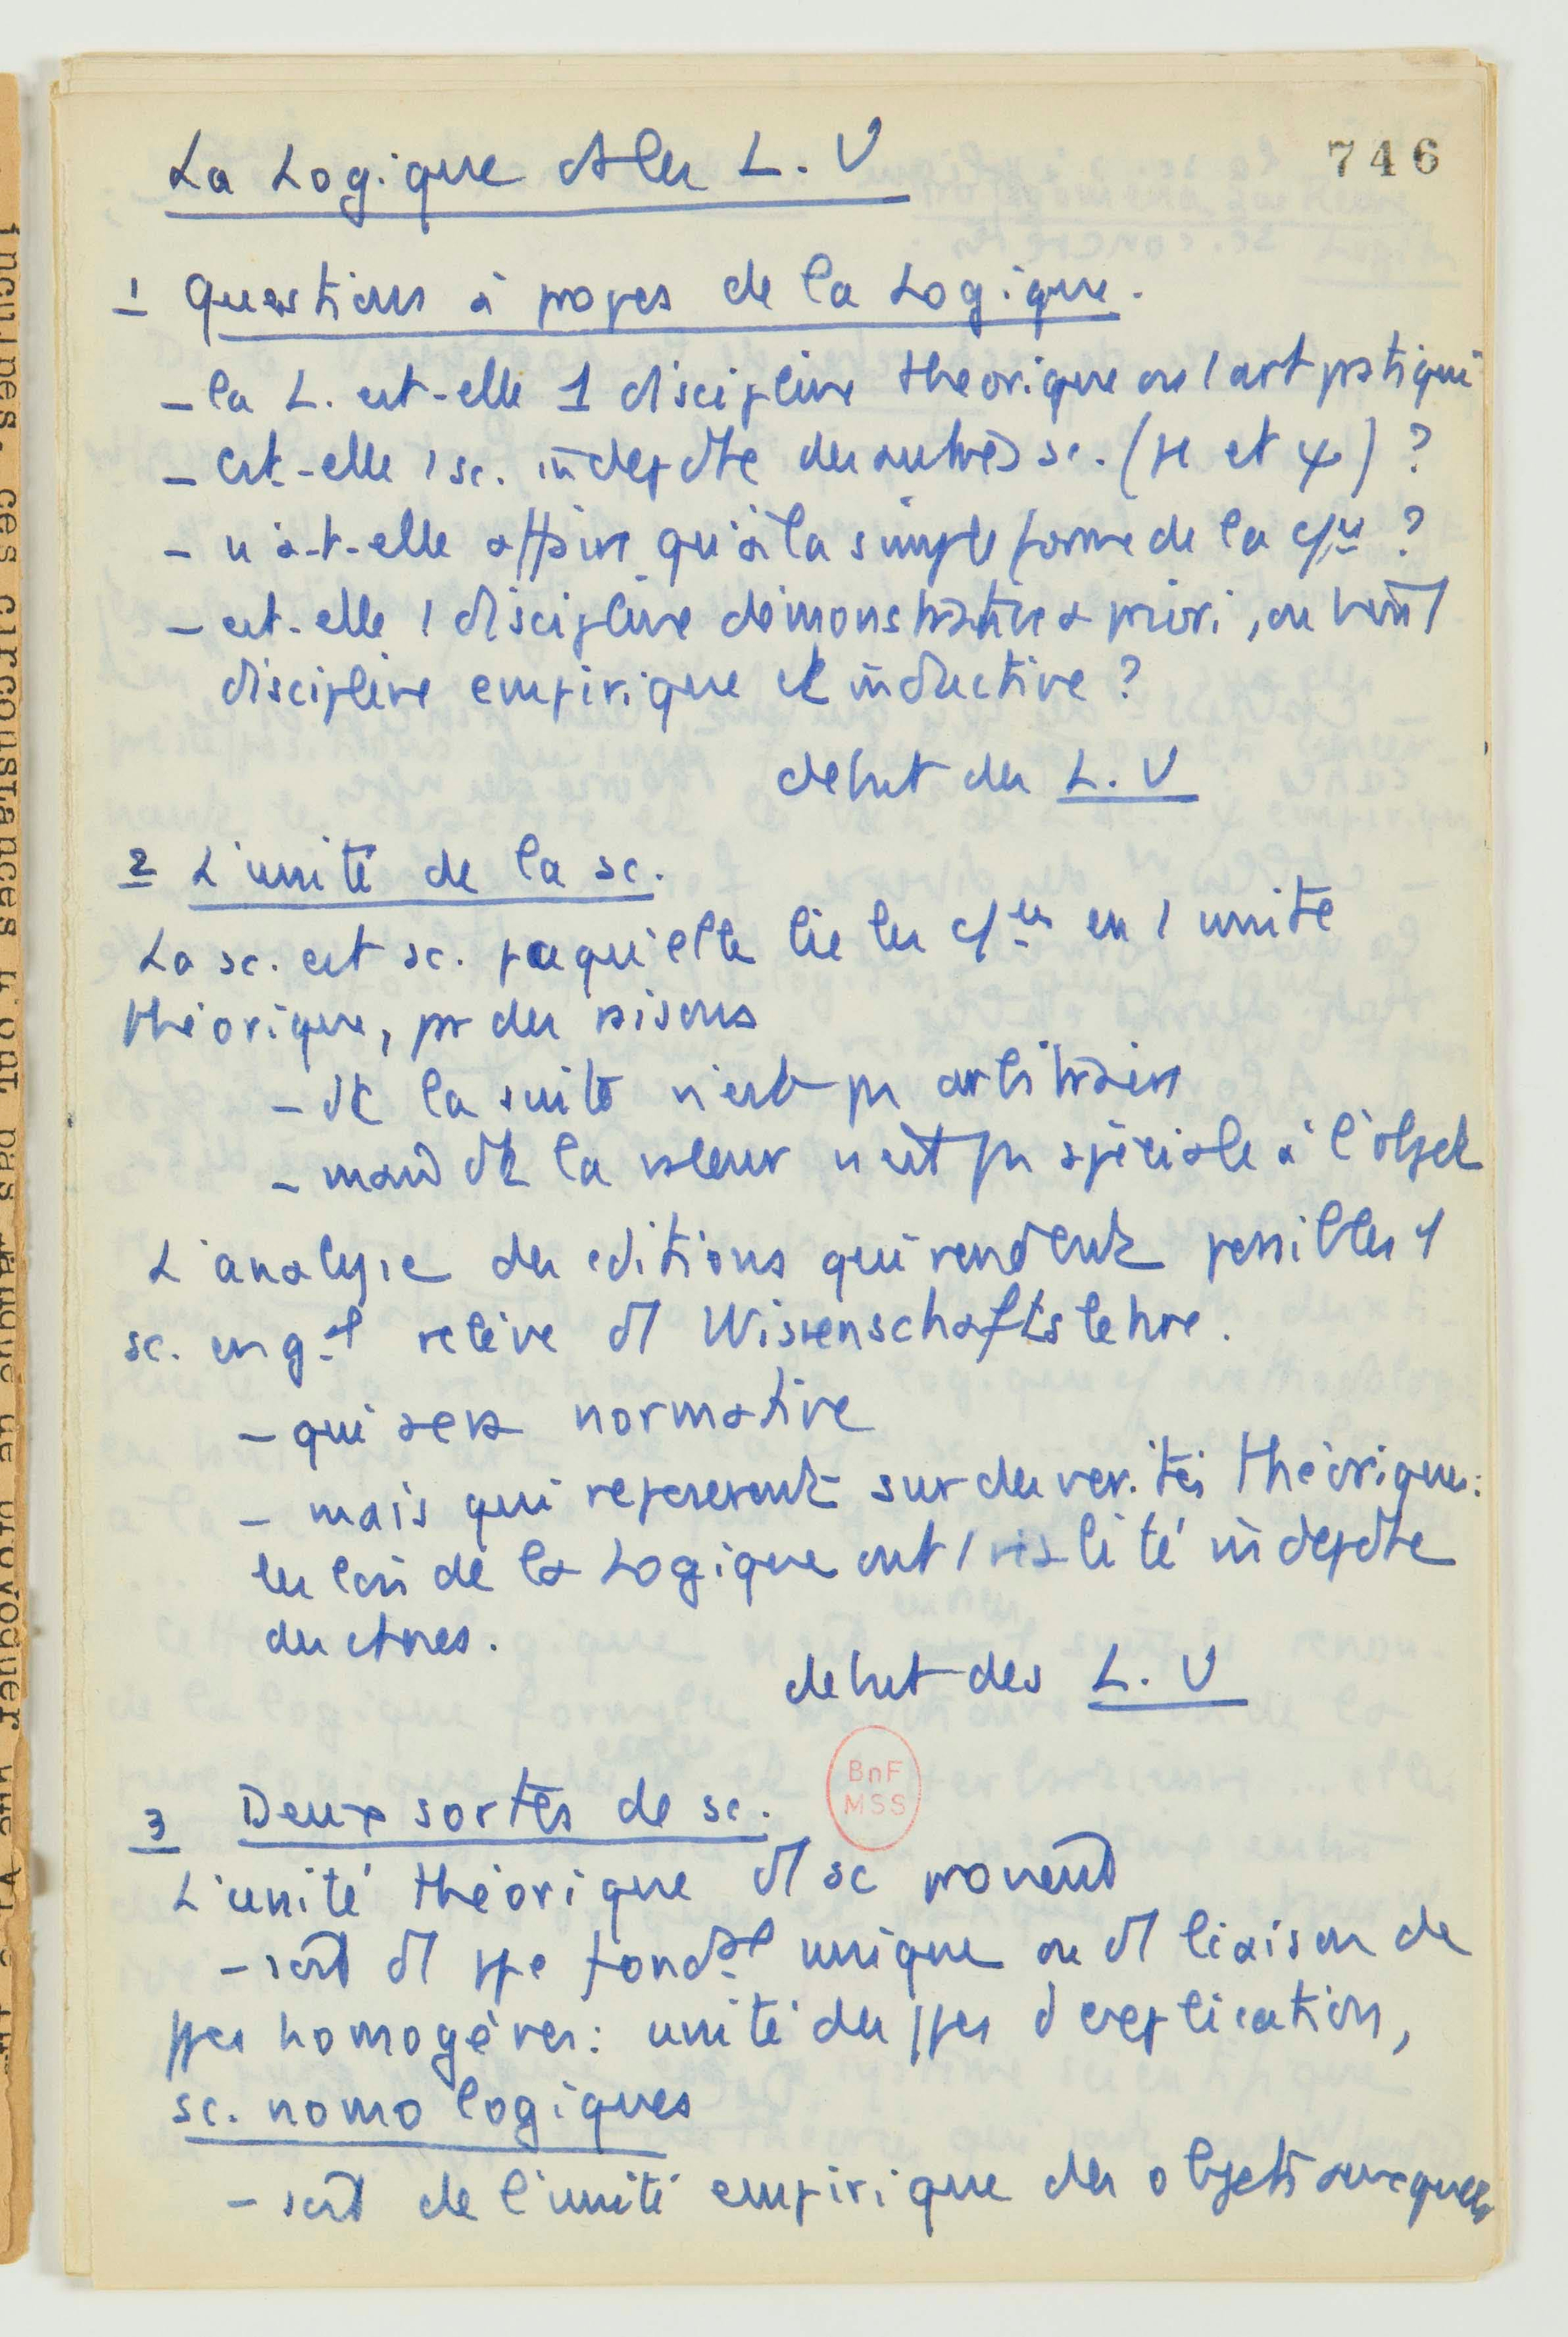 746
La Logique ds les L. V
1 Questions à propos de la Logique.
- la L. est-elle 1 discipline théorique ou 1 art pratique
- est-elle 1 sc. indepdte des autres sc. (μ et ψ) ?
- n'a-t-elle affaire qu'à la simple forme de la c/ce ?
- est-elle 1 discipline démonstrative a priori, ou bien 1
discipline empirique et inductive ?
debut des L. V
2 L'unité de la sc.
La sc. est sc. pcequ'elle lie les c/ces en 1 unité
théorique, par des raisons
- dt la suite n'est pas arbitraire
- mais dt la valeur n'est pas spéciale à l'objet
L'analyse des cditions qui rendent possibles 1
sc. en gal relève d1 Wissenschaftslehre.
- qui sera normative
- mais qui reposerent sur des verités théoriques:
les lois de la Logique ont 1 réalité indepdte
des ctnes.
debut des L. V
BnF
MSS
3 Deux sortes de sc.
L'unité théorique d1 sc provend
- soit d1 ppe fondal unique ou d1 liaison de
ppes homogènes: unité des ppes d'explication,
sc. nomologiques
- soit de l'unité empirique des objets auxquels